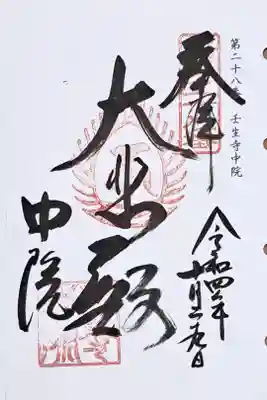 第二十八番 壬生寺中院
奉拝
大悲殿
中院
令和四年
十月二九日